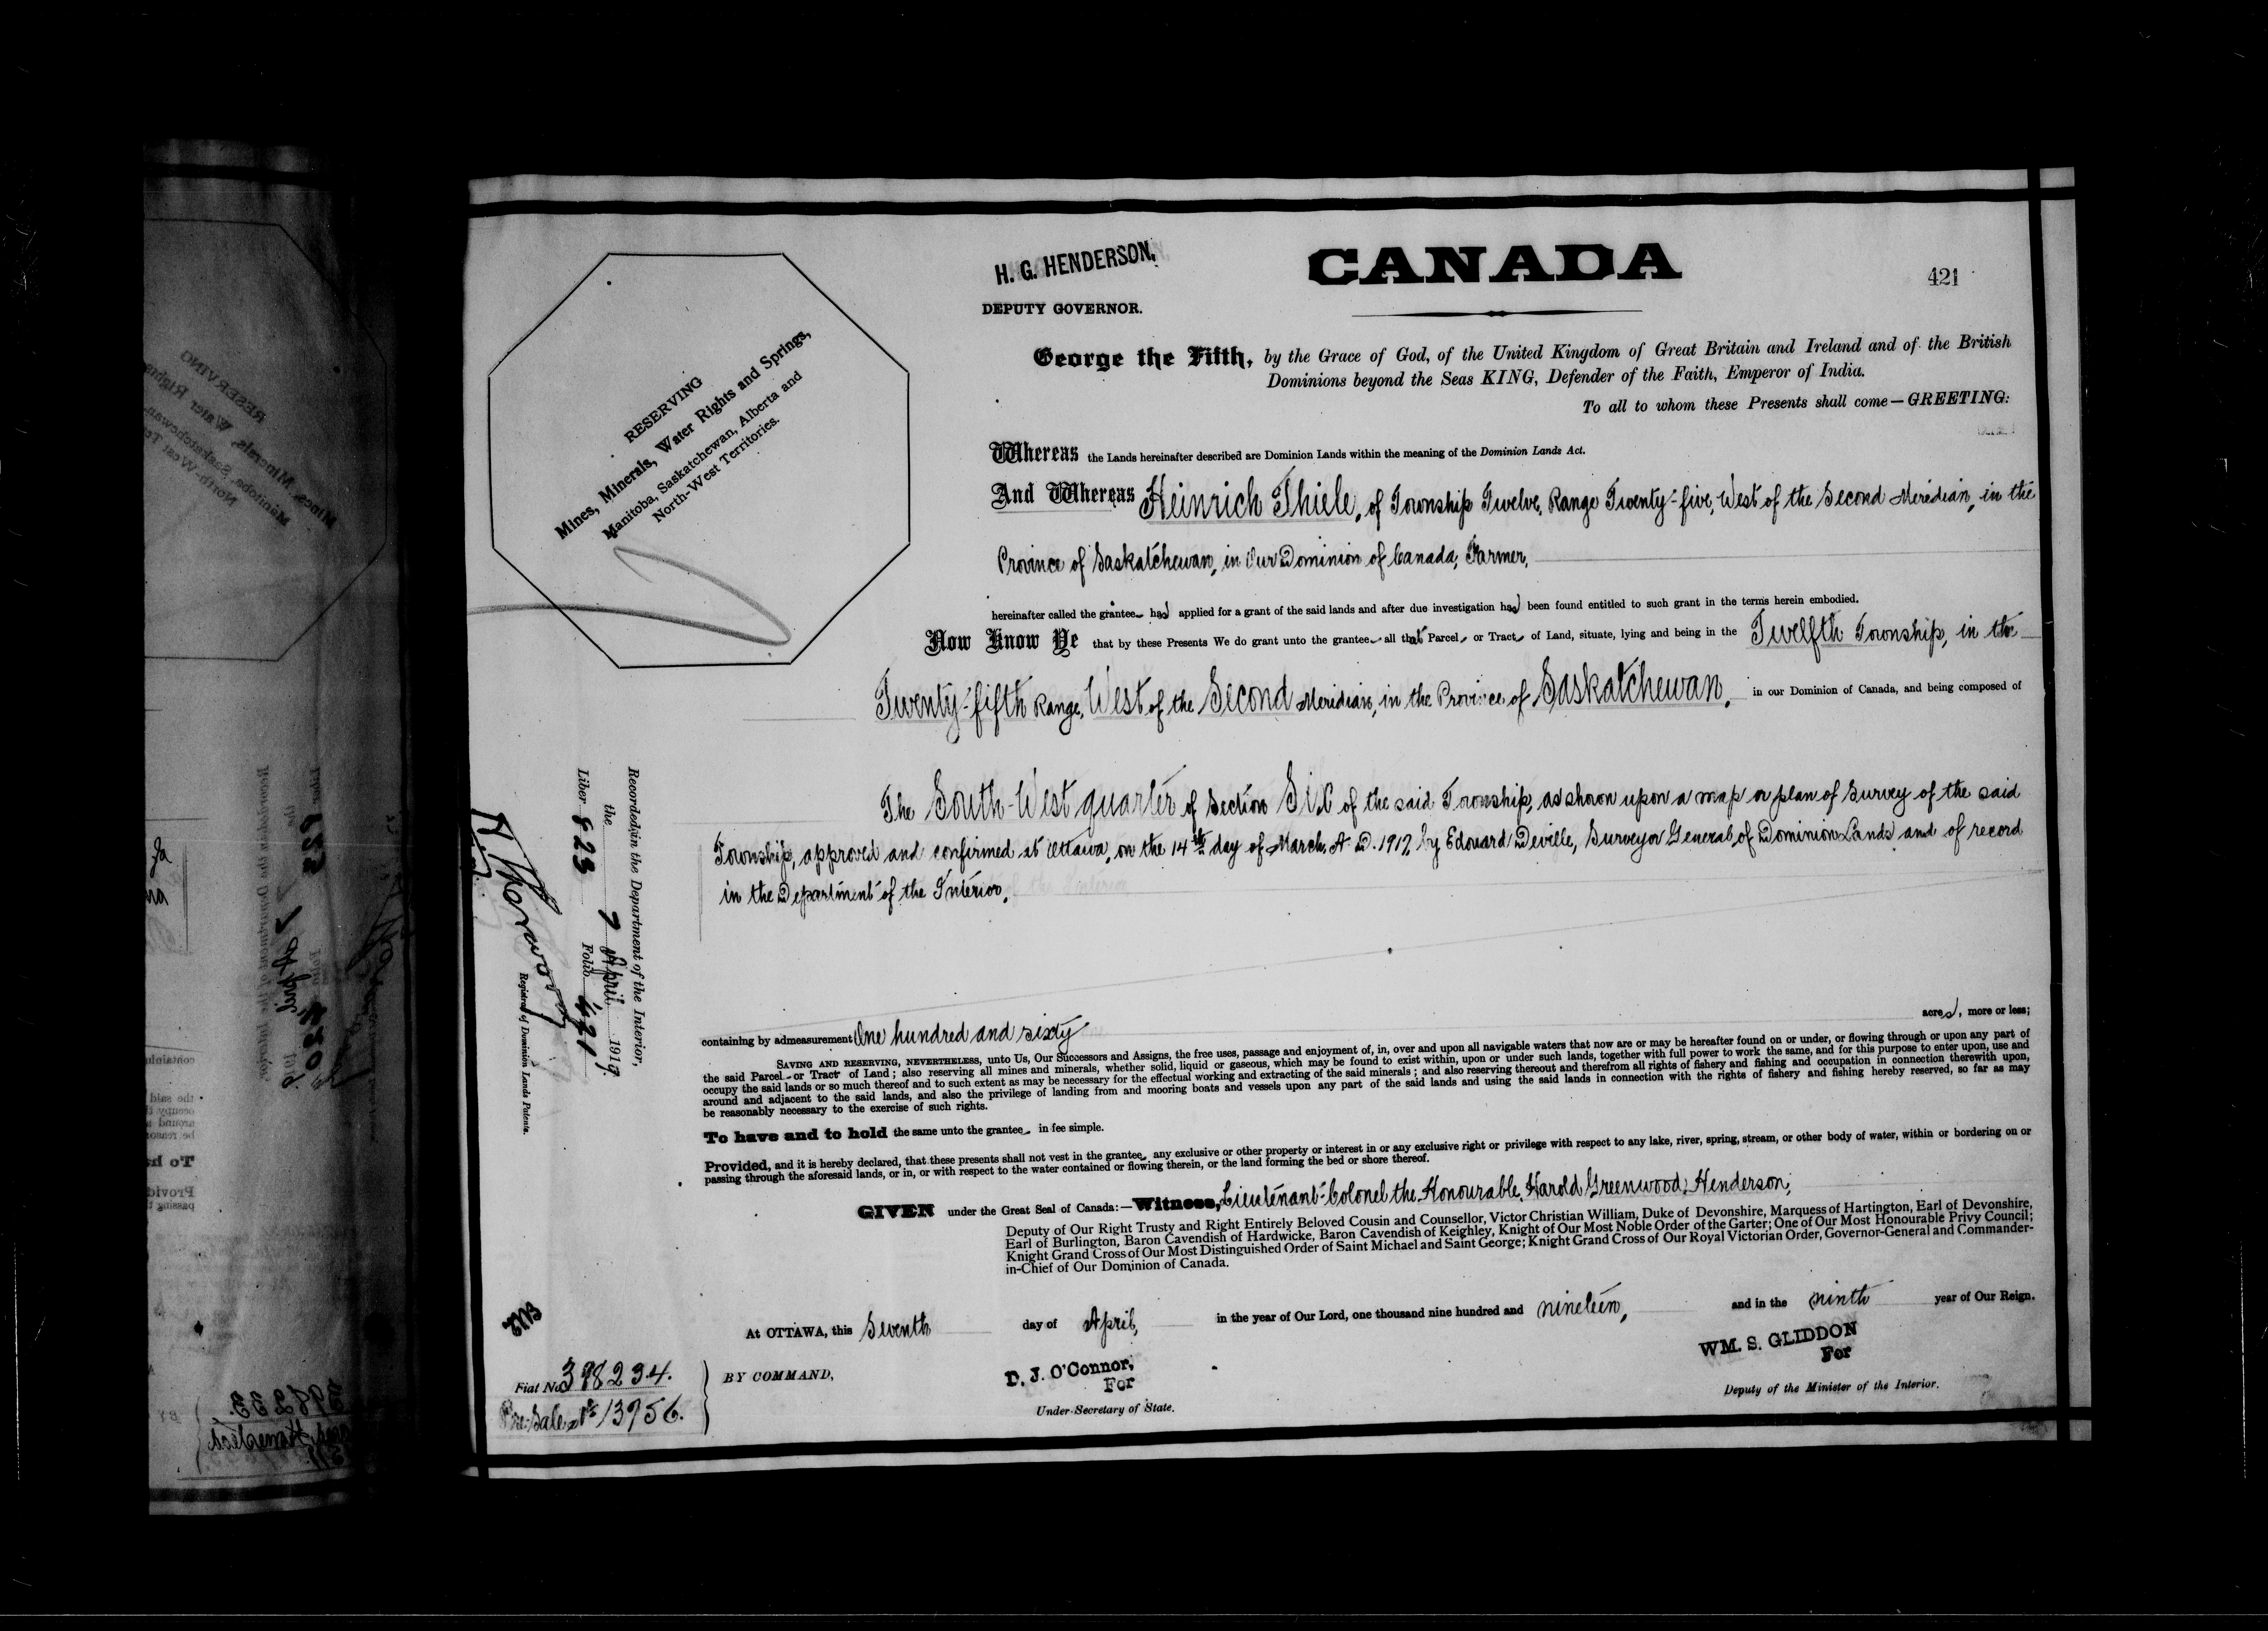 H. G. HENDERSON,
DEPUTY GOVERNOR.
CANADA
421
RESERVING
Mines, Minerals, Water Rights and Springs,
Manitoba, Saskatchewan, Alberta and
North-West Territories.
George the Fifth, by the Grace of God, of the United Kingdom of Great Britain and Ireland and of the British
Dominions beyond the Seas KING, Defender of the Faith, Emperor of India.
To all to whom these Presents shall come—GREETING:
Whereas the Lands hereinafter described are Dominion Lands within the meaning of the Dominion Lands Act.
And Whereas Heinrich Thiele, of Township Twelve, Range Twenty-five, West of the Second Meridian, in the
Province of Saskatchewan, in Our Dominion of Canada, Farmer,
hereinafter called the grantee has applied for a grant of the said lands and after due investigation has been found entitled to such grant in the terms herein embodied.
Now Know Ye that by these Presents We do grant unto the grantee all that Parcel or Tract of Land, situate, lying and being in the Twelfth Township, in the
Twenty-fifth Range, West of the Second Meridian, in the Province of Saskatchewan, in our Dominion of Canada, and being composed of
The South-West quarter of Section Six of the said Township, as shown upon a map or plan of Survey of the said
Township, approved and confirmed at Ottawa, on the 14th day of March, A. D. 1917, by Edouard Deville, Surveyor General of Dominion Lands and of record
in the Department of the Interior,
containing by admeasurement One hundred and sixty acres, more or less;
SAVING AND RESERVING, NEVERTHELESS, unto Us, Our Successors and Assigns, the free uses, passage and enjoyment of, in, over and upon all navigable waters that now are or may be hereafter found on or under, or flowing through or upon any part of
the said Parcel or Tract of Land; also reserving all mines and minerals, whether solid, liquid or gaseous, which may be found to exist within, upon or under such lands, together with full power to work the same, and for this purpose to enter upon, use and
occupy the said lands or so much thereof and to such extent as may be necessary for the effectual working and extracting of the said minerals; and also reserving thereout and therefrom all rights of fishery and fishing and occupation in connection therewith upon,
around and adjacent to the said lands, and also the privilege of landing from and mooring boats and vessels upon any part of the said lands and using the said lands in connection with the rights of fishery and fishing hereby reserved, so far as may
be reasonably necessary to the exercise of such rights.
To have and to hold the same unto the grantee in fee simple.
Provided, and it is hereby declared, that these presents shall not vest in the grantee any exclusive or other property or interest in or any exclusive right or privilege with respect to any lake, river, spring, stream, or other body of water, within or bordering on or
passing through the aforesaid lands, or in, or with respect to the water contained or flowing therein, or the land forming the bed or shore thereof.
GIVEN under the Great Seal of Canada:—Witness, Lieutenant-Colonel the Honourable, Harold Greenwood, Henderson,
Deputy of Our Right Trusty and Right Entirely Beloved Cousin and Counsellor, Victor Christian William, Duke of Devonshire, Marquess of Hartington, Earl of Devonshire,
Earl of Burlington, Baron Cavendish of Hardwicke, Baron Cavendish of Keighley, Knight of Our Most Noble Order of the Garter; One of Our Most Honourable Privy Council;
Knight Grand Cross of Our Most Distinguished Order of Saint Michael and Saint George; Knight Grand Cross of Our Royal Victorian Order, Governor-General and Commander-
in-Chief of Our Dominion of Canada.
At OTTAWA, this Seventh day of April, in the year of Our Lord, one thousand nine hundred and nineteen, and in the ninth year of Our Reign.
BY COMMAND,
D. J. O'Connor,
For
Under-Secretary of State.
WM. S. GLIDDON
For
Deputy of the Minister of the Interior.
Recorded in the Department of the Interior,
the 7 April 1919.
Liber 823 Folio 421
Registrar of Dominion Lands Patents.
Fiat No 398234.
Pre-Sale No 13956.